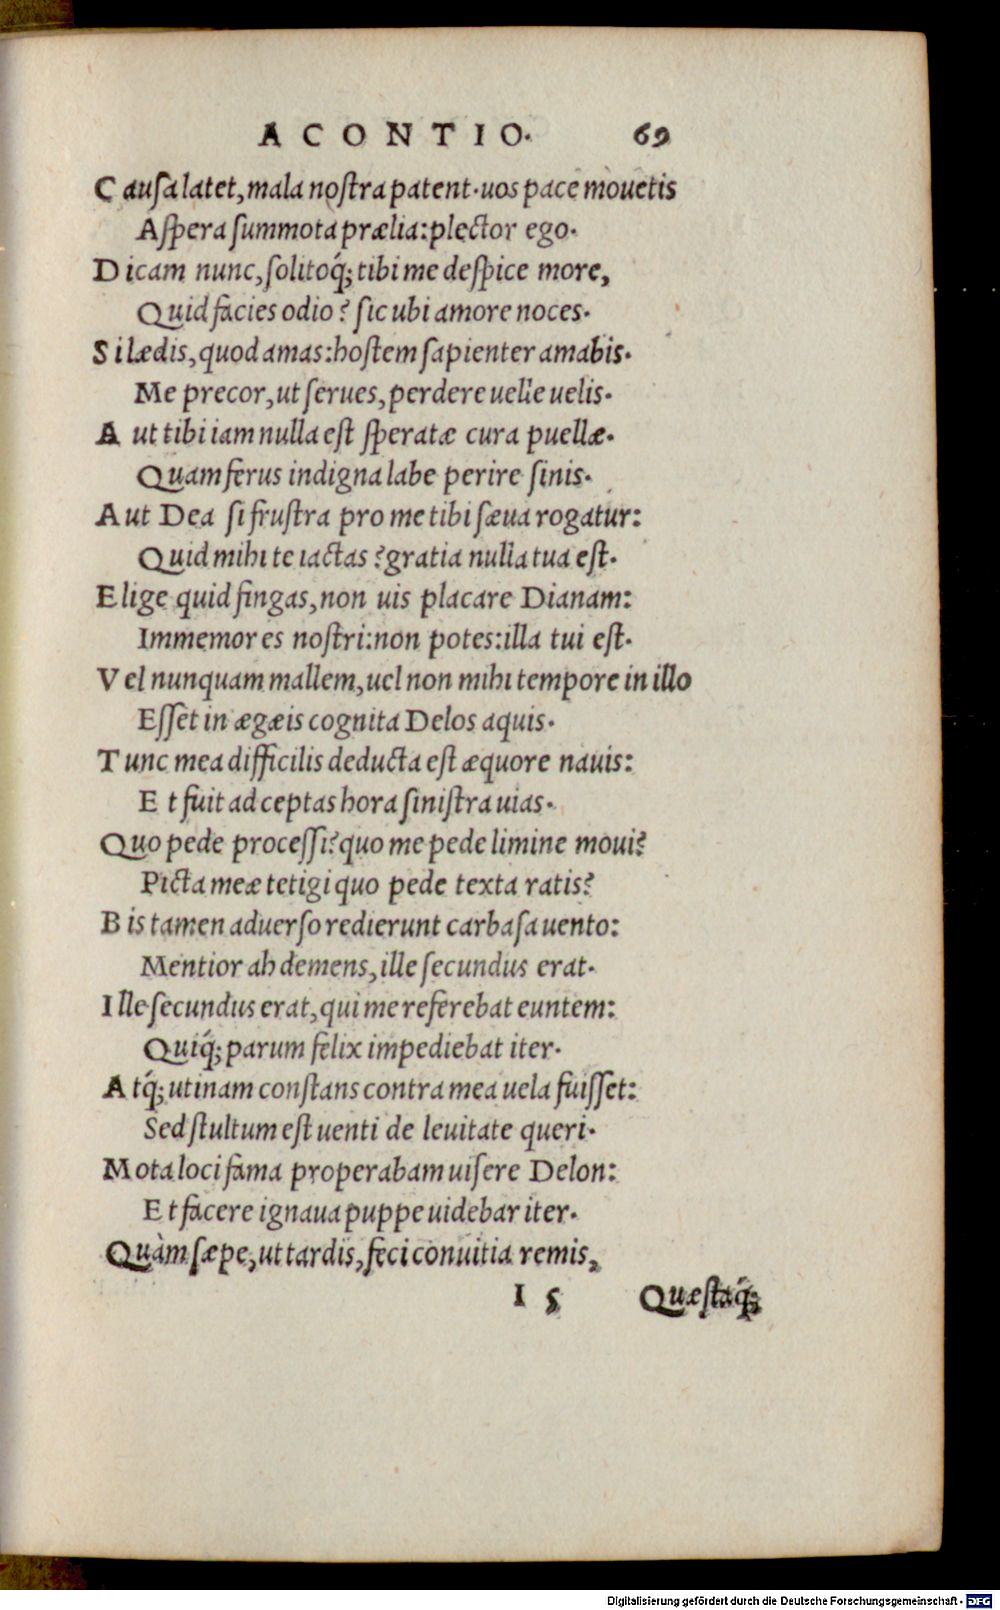 ACONTIO. 69
Causa latet, mala nostra patent. uos pace mouetis
Aspera summota prælia: plector ego.
Dicam nunc, solitoq́; tibi me despice more,
Quid facies odio? sic ubi amore noces.
Si lædis, quod amas: hostem sapienter amabis.
Me precor, ut serues, perdere uelle uelis.
Aut tibi iam nulla est speratæ cura puellæ.
Quam ferus indigna labe perire sinis.
Aut Dea si frustra pro me tibi sæua rogatur:
Quid mihi te iactas? gratia nulla tua est.
Elige quid fingas, non uis placare Dianam:
Immemor es nostri: non potes: illa tui est.
Vel nunquam mallem, uel non mihi tempore in illo
Esset in ægæis cognita Delos aquis.
Tunc mea difficilis deducta est æquore nauis:
Et fuit ad ceptas hora sinistra uias.
Quo pede processi? quo me pede limine moui?
Picta meæ tetigi quo pede texta ratis?
Bis tamen aduerso redierunt carbasa uento:
Mentior ah demens, ille secundus erat.
Ille secundus erat, qui me referebat euntem:
Quiq́; parum felix impediebat iter.
Atq́; utinam constans contra mea uela fuisset:
Sed stultum est uenti de leuitate queri.
Mota loci fama properabam uisere Delon:
Et facere ignaua puppe uidebar iter.
Quàm sæpe, ut tardis, feci conuitia remis,
I 5 Quæstaq́;
Digitalisierung gefördert durch die Deutsche Forschungsgemeinschaft - DFG